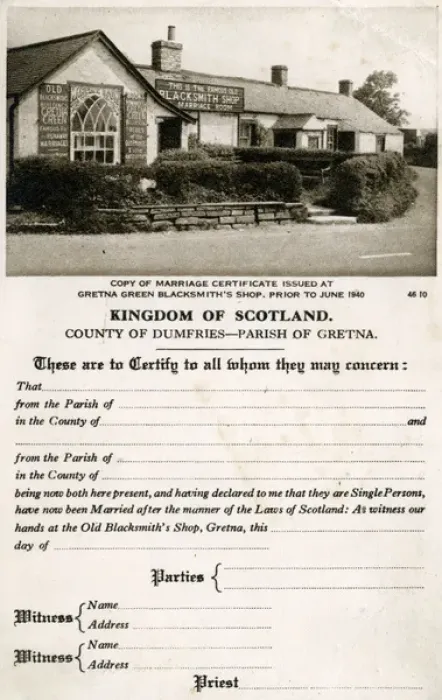 THIS IS THE FAMOUS OLD
BLACKSMITH'S SHOP
MARRIAGE ROOM
OLD
GRETNA
GREEN
COPY OF MARRIAGE CERTIFICATE ISSUED AT
GRETNA GREEN BLACKSMITH'S SHOP. PRIOR TO JUNE 1940
46 10
KINGDOM OF SCOTLAND.
COUNTY OF DUMFRIES—PARISH OF GRETNA.
These are to Certify to all whom they may concern:
That
from the Parish of
in the County of and
from the Parish of
in the County of
being now both here present, and having declared to me that they are Single Persons,
have now been Married after the manner of the Laws of Scotland: As witness our
hands at the Old Blacksmith's Shop, Gretna, this
day of
Parties
Witness Name
Address
Witness Name
Address
Priest